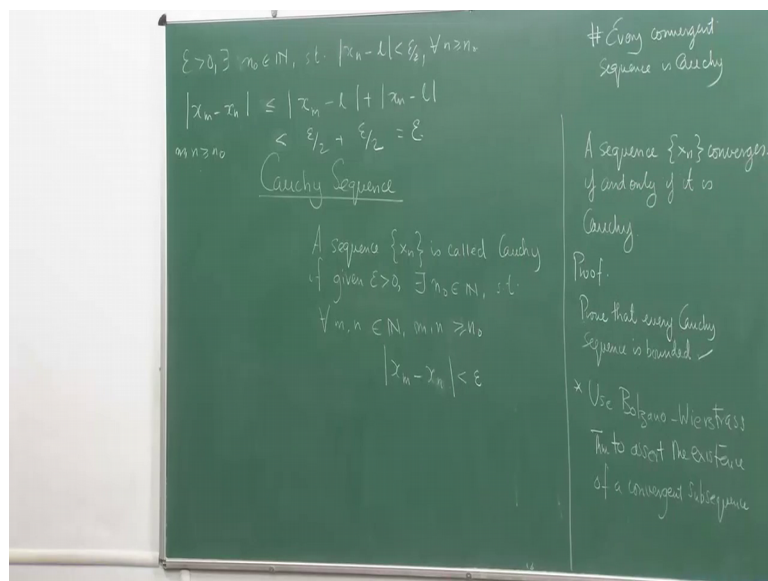 ε>0, ∃ n₀∈ℕ, st. |xₙ-l|<ε/2, ∀n≥n₀
|xₘ-xₙ| ≤ |xₘ-l|+|xₙ-l|
< ε/2 + ε/2 = ε.
m,n≥n₀
Cauchy Sequence
A sequence {xₙ} is called Cauchy
if given ε>0, ∃ n₀∈ℕ, st.
∀ m,n ∈ℕ, m,n ≥n₀
|xₘ-xₙ|<ε
# Every convergent
sequence is Cauchy
A sequence {xₙ} converges
if and only if it is
Cauchy
Proof.
Prove that every Cauchy
sequence is bounded ✓
* Use Bolzano-Wierstrass
Thm to assert the existence
of a convergent subsequence